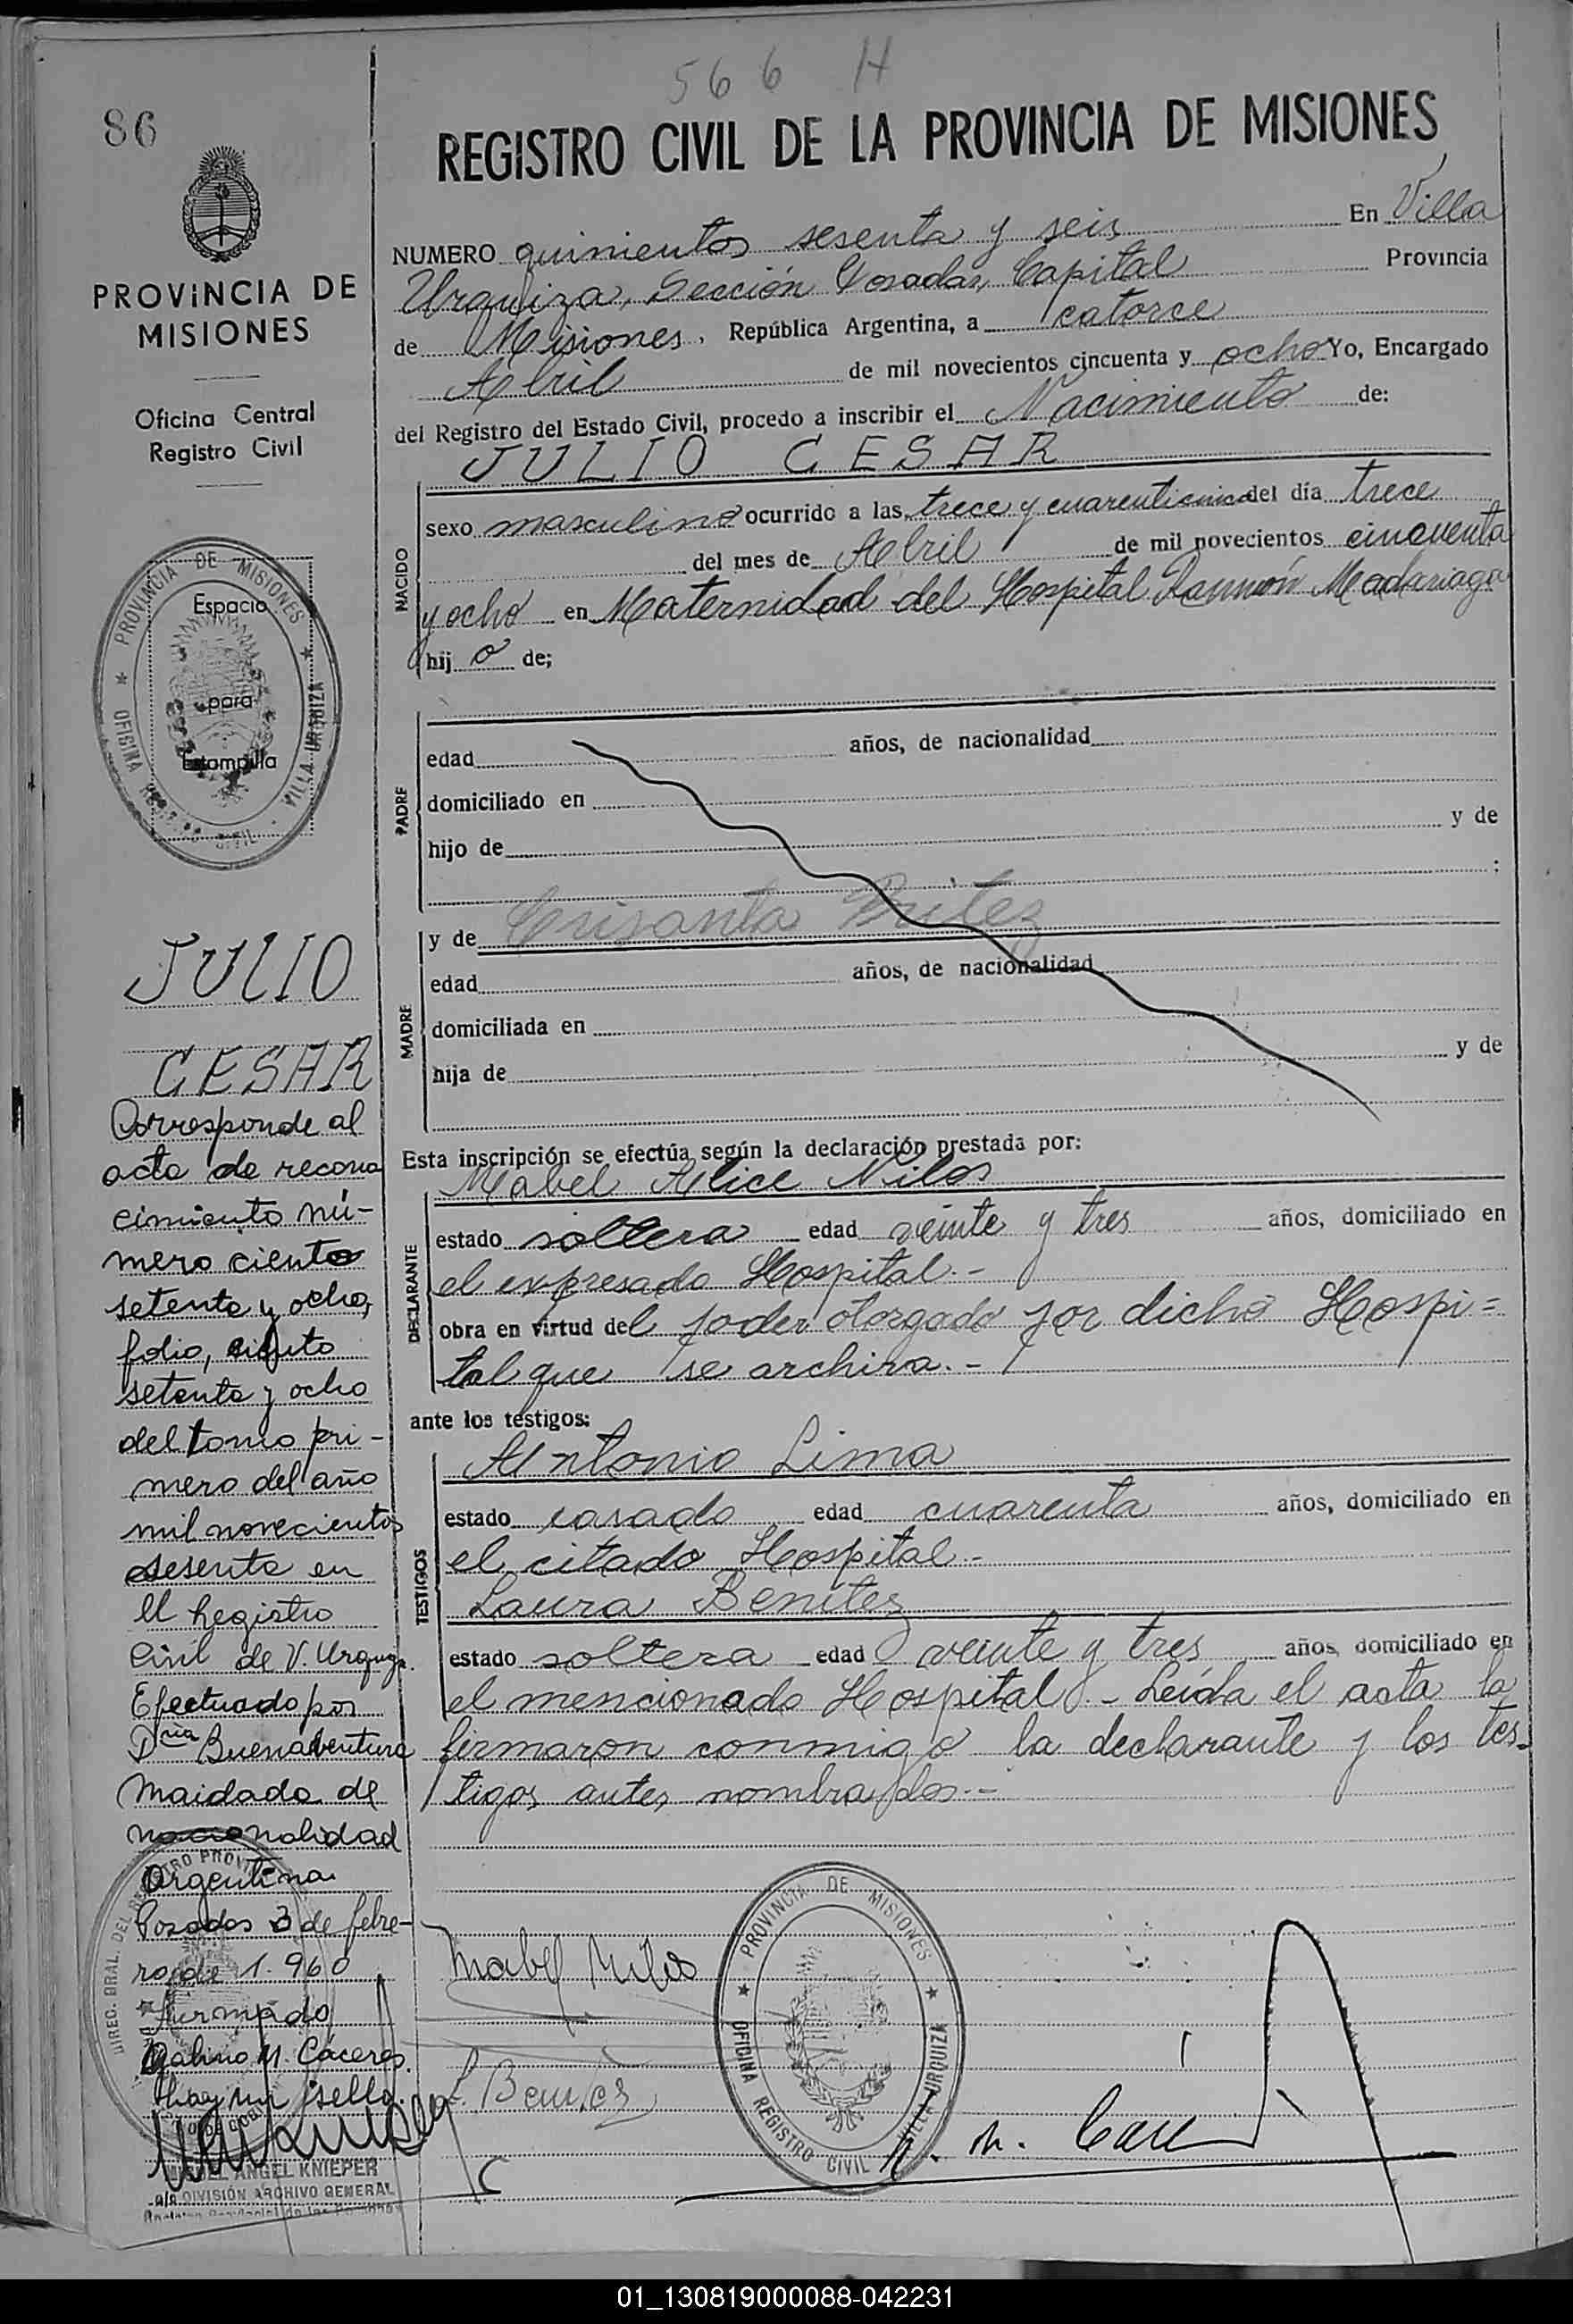 566 H
86
REGISTRO CIVIL DE LA PROVINCIA DE MISIONES
PROVINCIA DE
MISIONES
Oficina Central
Registro Civil
NUMERO quinientos sesenta y seis En Villa
Urquiza, Sección Posadas, Capital Provincia
de Misiones, República Argentina, a catorce
Abril de mil novecientos cincuenta y ocho Yo, Encargado
del Registro del Estado Civil, procedo a inscribir el Nacimiento de:
JULIO CESAR
NACIDO
sexo masculino ocurrido a las trece y cuarenticinco del día trece
del mes de Abril de mil novecientos cincuenta
y ocho en Maternidad del Hospital Ramón Madariaga
hij o de;
PROVINCIA DE MISIONES
OFICINA REGISTRO CIVIL - VILLA URQUIZA
Espacio
para
Estampilla
PADRE
edad años, de nacionalidad
domiciliado en
hijo de y de
:
MADRE
y de Crisanta Britez
edad años, de nacionalidad
domiciliada en
hija de y de
Esta inscripción se efectúa según la declaración prestada por:
Mabel Alice Nilos
DECLARANTE
estado soltera edad veinte y tres años, domiciliado en
el expresado Hospital.-
obra en virtud del poder otorgado por dicho Hospi=
tal que se archiva.-
ante los testigos:
Antonio Lima
TESTIGOS
estado casado edad cuarenta años, domiciliado en
el citado Hospital.-
Laura Benitez
estado soltera edad veinte y tres años, domiciliado en
el mencionado Hospital.- Leída el acta la
firmaron conmigo la declarante y los tes-
tigos antes nombrados.-
JULIO
CESAR
Corresponde al
acta de recono
cimiento nú-
mero ciento
setenta y ocho,
folio, ciento
setenta y ocho
del tomo pri-
mero del año
mil novecientos
sesenta en
el Registro
Civil de V. Urquiza.
Efectuado por
Dña Buenaventura
Maidada de
nacionalidad
Argentina
Posadas 3 de febre-
ro de 1.960
Firmado
Galino M. Cáceres.
Hay un sello.
MIGUEL ANGEL KNIEPER
a/c DIVISIÓN ARCHIVO GENERAL
Mabel Nilos
L. Benitez
PROVINCIA DE MISIONES
OFICINA REGISTRO CIVIL VILLA URQUIZA
01_130819000088-042231